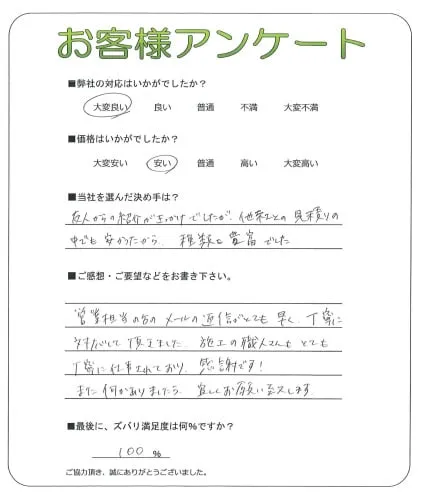 お客様アンケート
■弊社の対応はいかがでしたか？
大変良い 良い 普通 不満 大変不満
■価格はいかがでしたか？
大変安い 安い 普通 高い 大変高い
■当社を選んだ決め手は？
友人からの紹介がきっかけでしたが、他業者との見積りの
中でも安かったから。種類も豊富でした
■ご感想・ご要望などをお書き下さい。
営業担当の方のメールの返信がとても早く、丁寧に
対応して頂きました。施工の職人さんもとても
丁寧に仕事されており、感謝です！
また何かありましたら、宜しくお願い致します。
■最後に、ズバリ満足度は何％ですか？
100 ％
ご協力頂き、誠にありがとうございました。